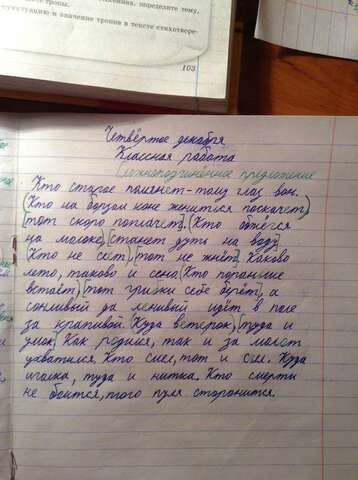 определите тему,
пунктуацию и значение тропов в тексте стихотворе-
103
Четвёртое декабря
Классная работа
Сложноподчинённое предложение
Кто старое помянет-тому глаз вон.
(Кто на борзом коне жениться поскачет)
[тот скоро поплачет]. (Кто обжёгся
на молоке), [станет дуть на воду]
(Кто не сеет), [тот не жнёт]. Каково
лето, таково и сено. (Кто пораньше
встаёт) [тот грибки себе берёт], а
сонливый да ленивый идёт в поле
за крапивой. (Куда ветерок), [туда и
умок]. Как родился, так и за молет
ухватился. Кто смел, тот и съел. Куда
иголка, туда и нитка. Кто смерти
не боится, того пуля сторонится.